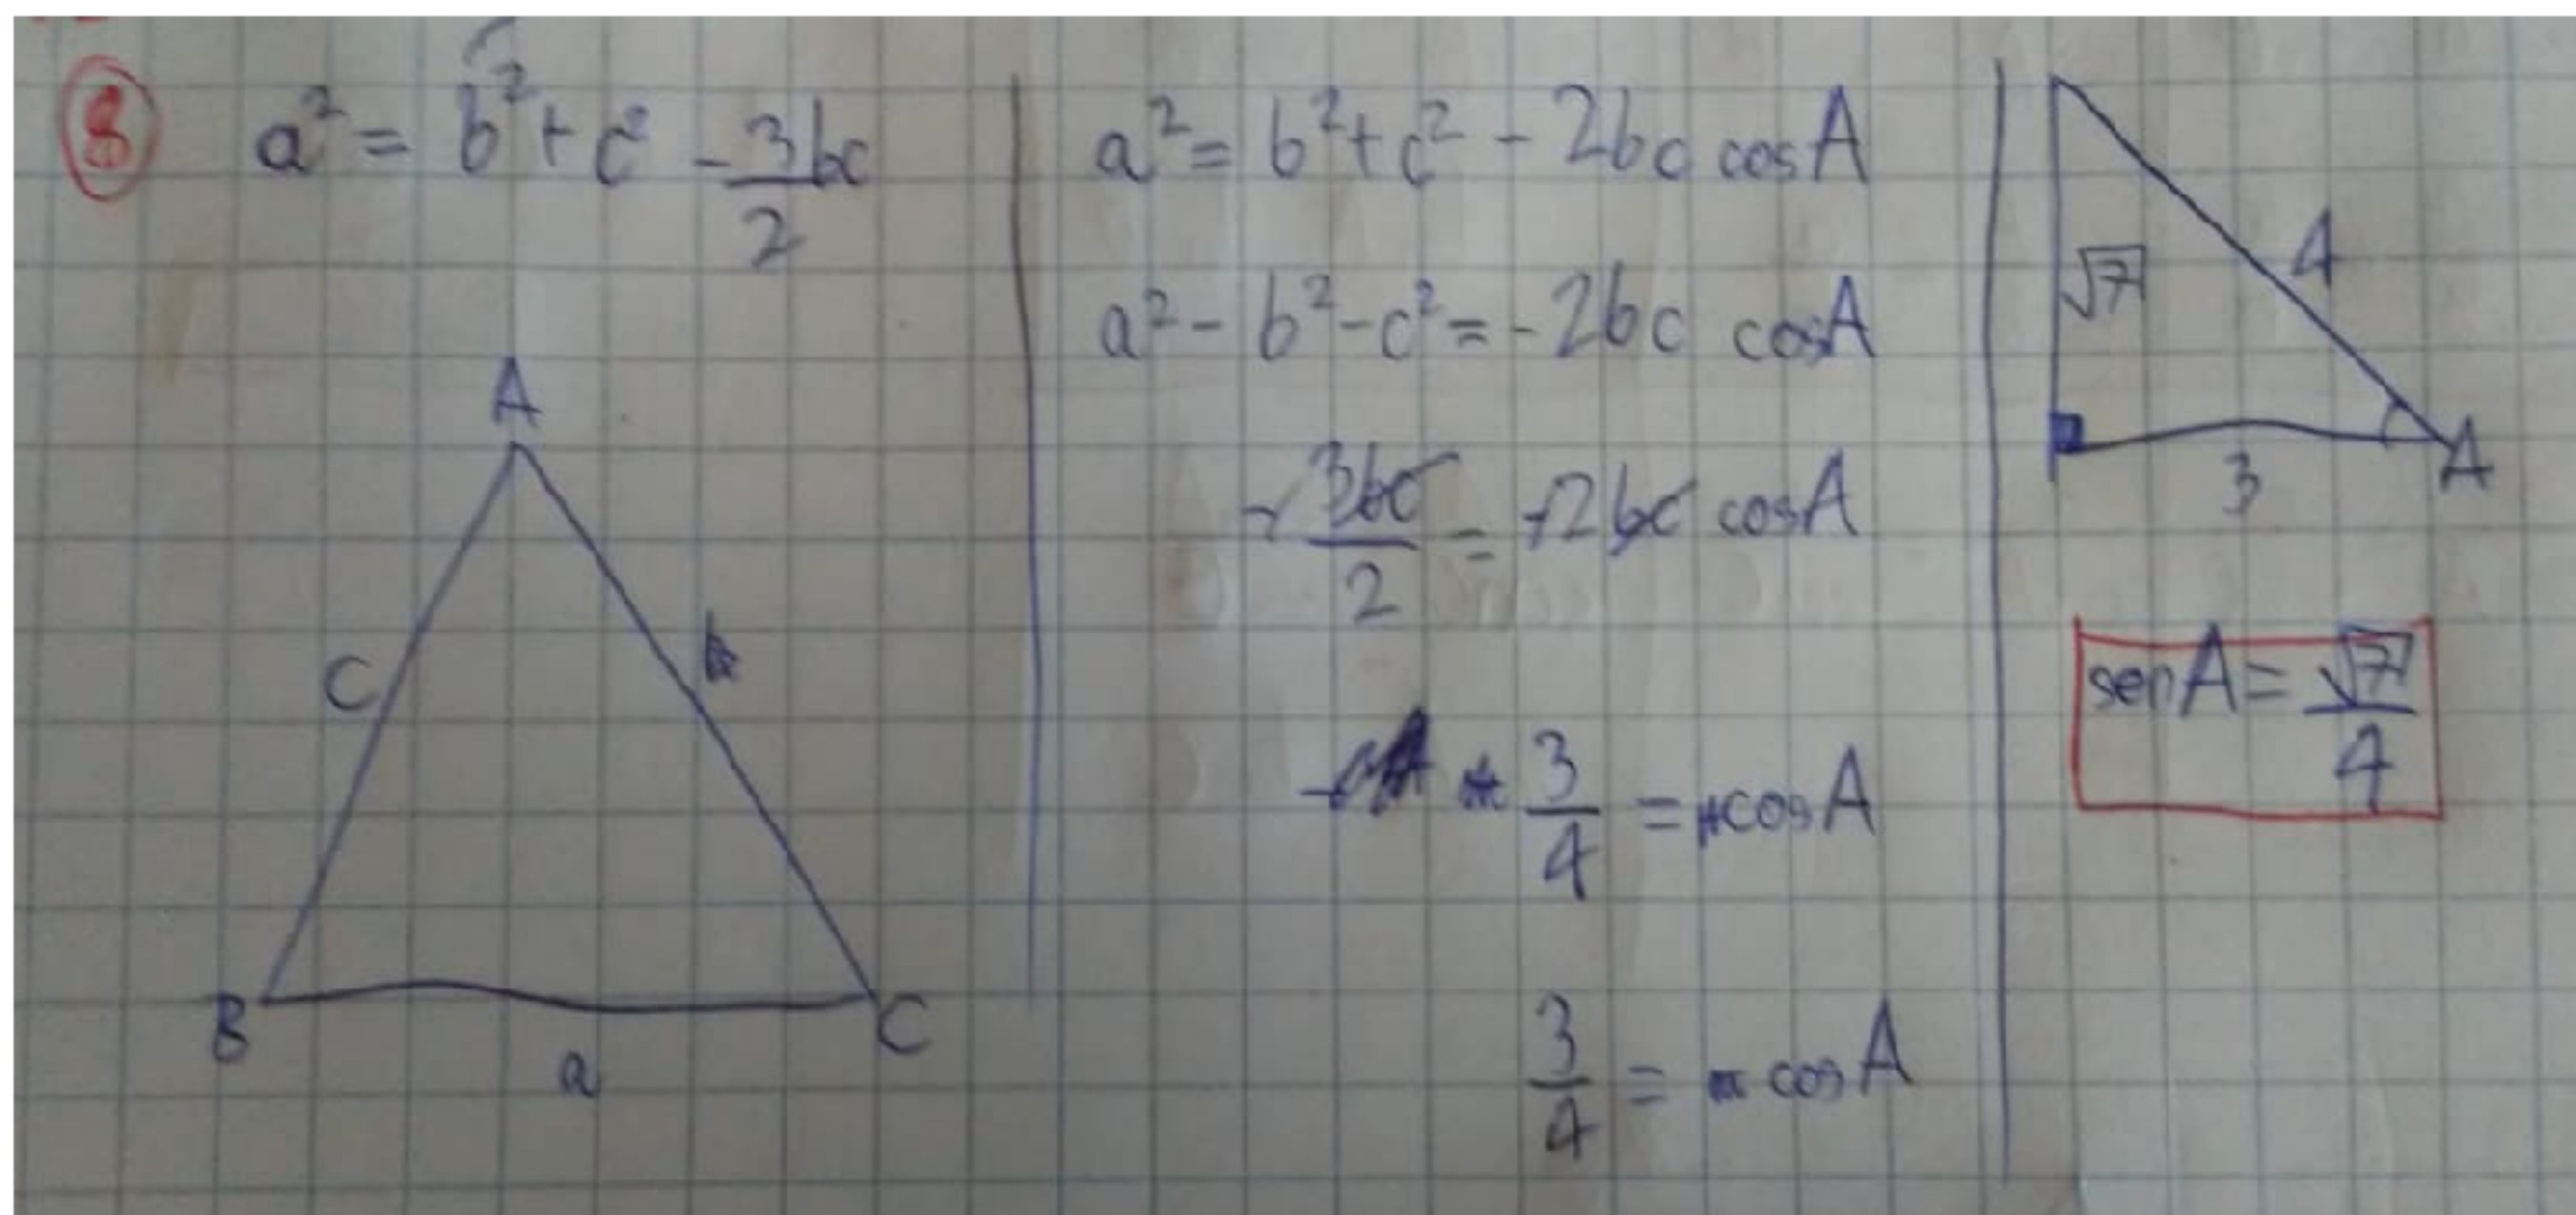 8
a² = b² + c² - 3bc/2
A
C
b
B
C
a
a² = b² + c² - 2bc cosA
a² - b² - c² = -2bc cosA
- 3bc/2 = -2bc cosA
3/4 = cosA
3/4 = cosA
√7
4
3
A
senA = √7/4